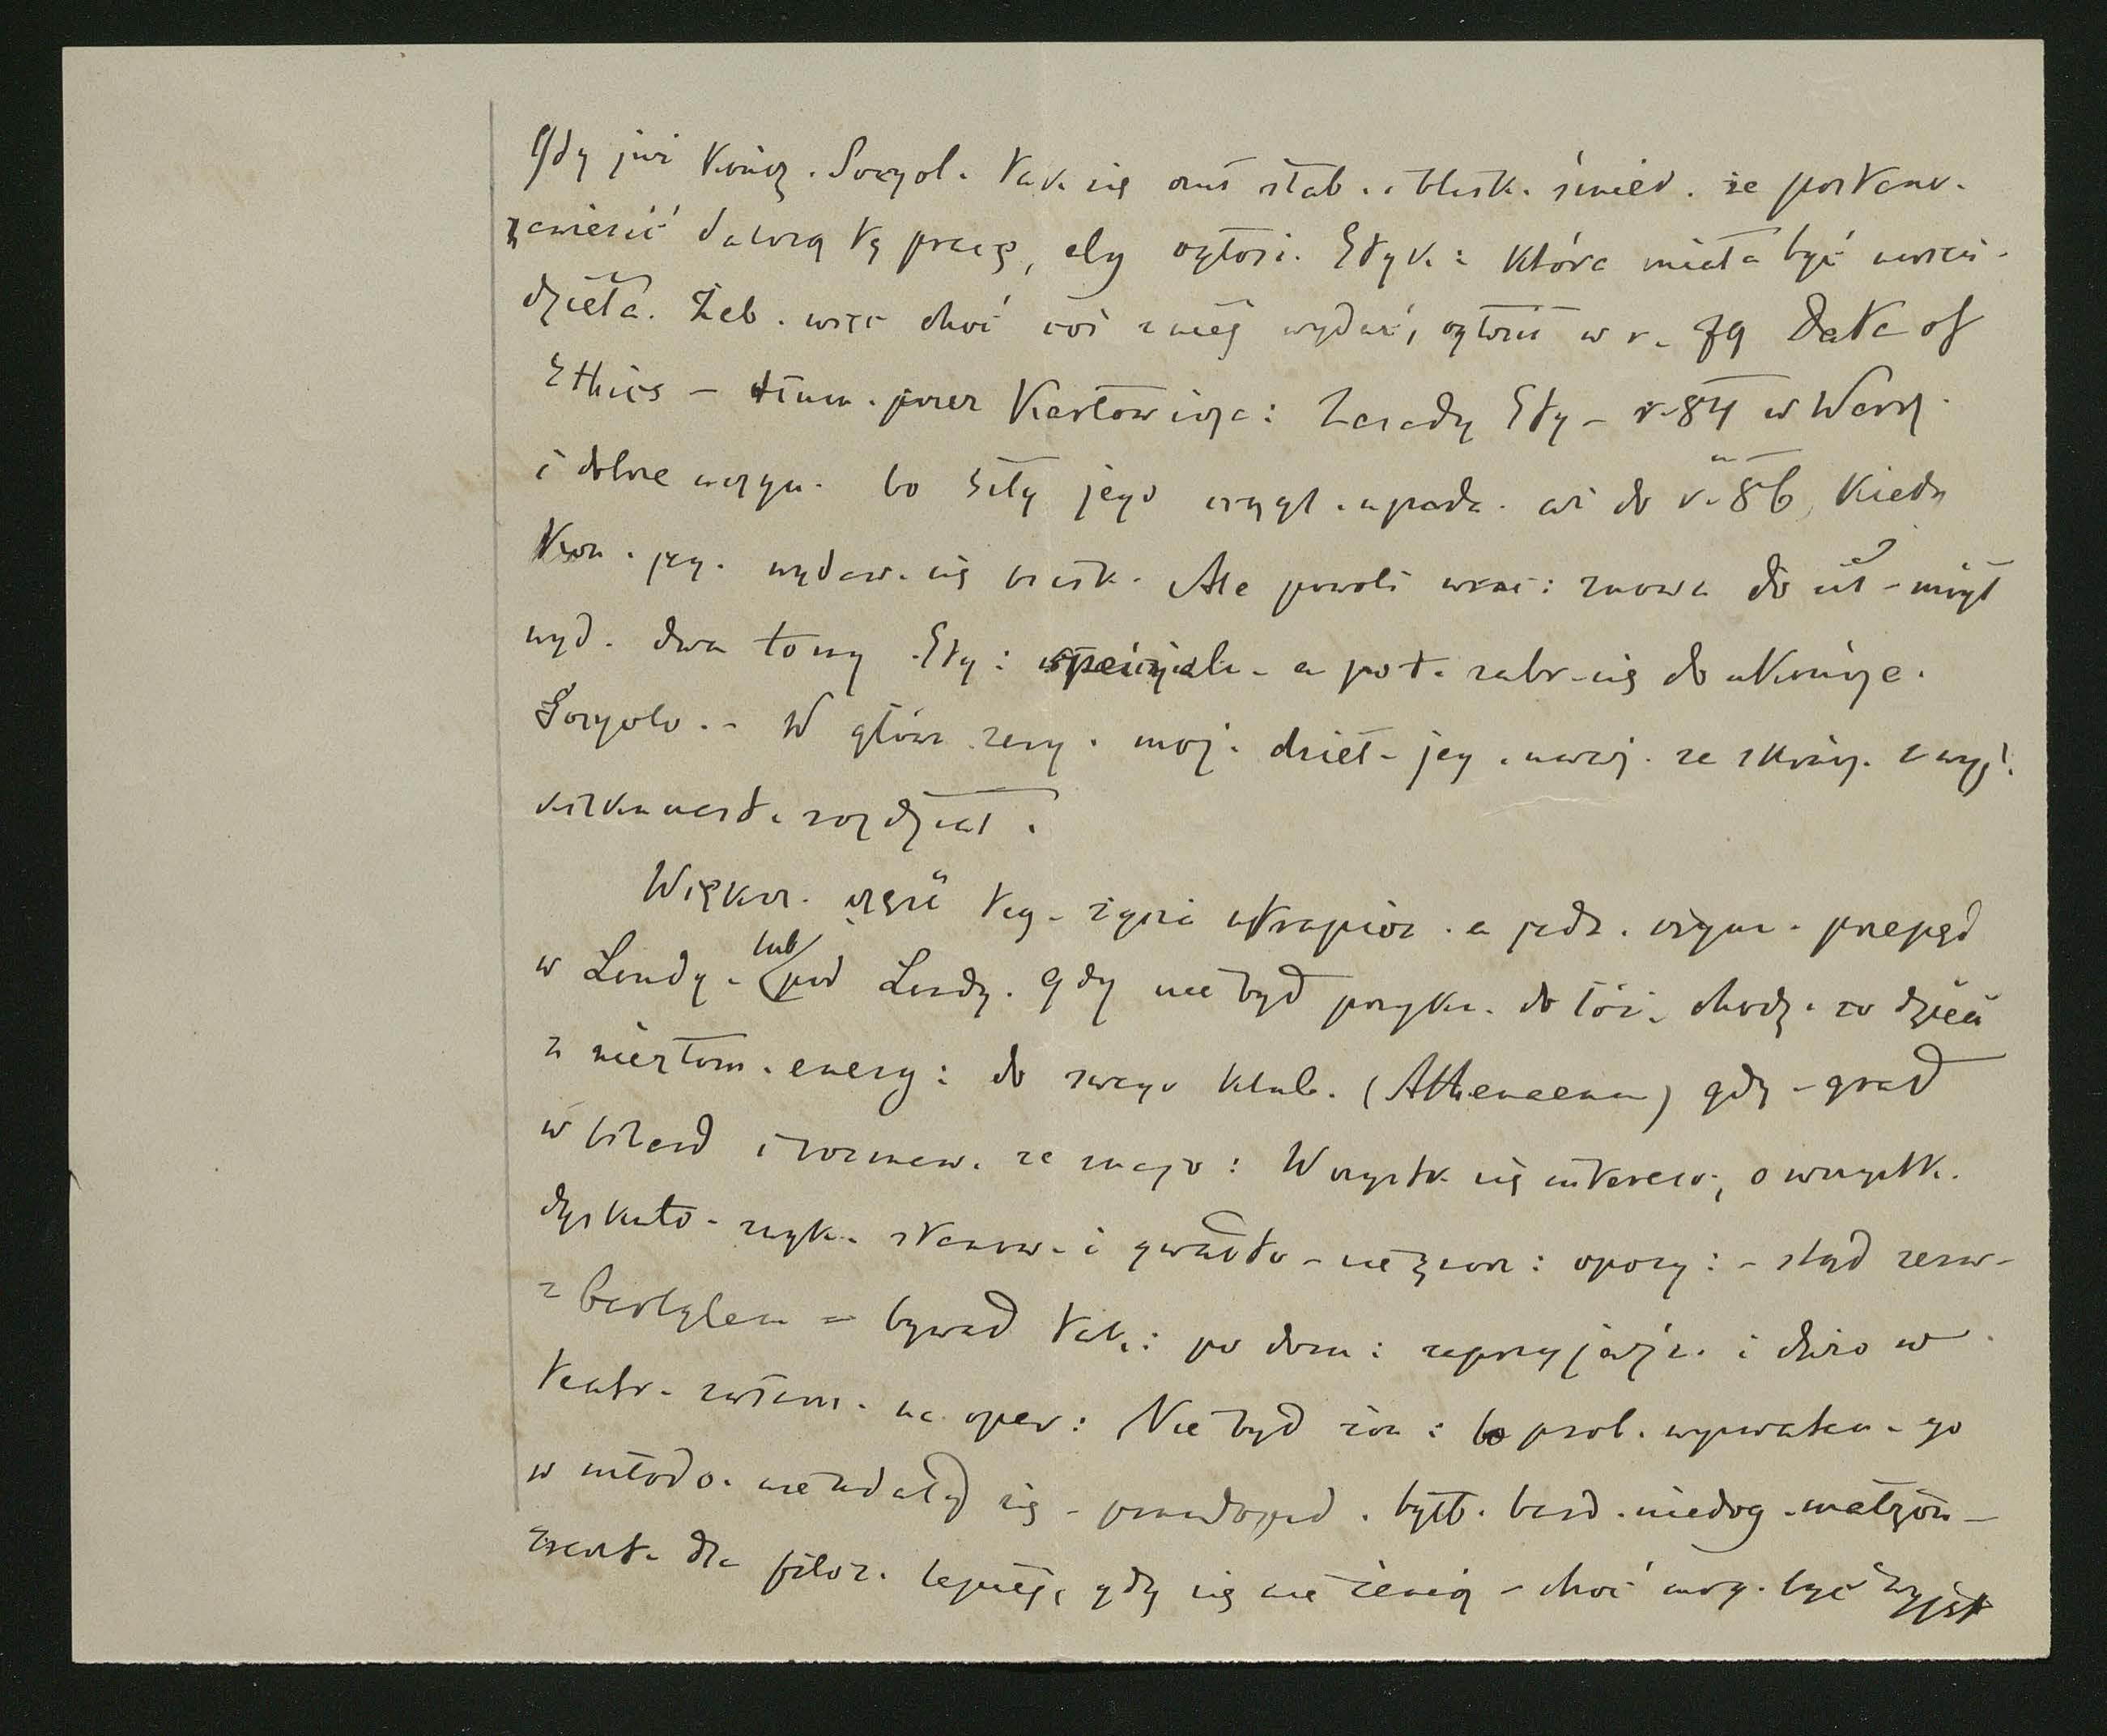 Gdy już kończ. Socyol. tak się czuł słab. i blisk. śmier. że postanow.
zawiesić dalszą tę pracę, aby ogłosi. Etyk: która miała być uwień.
dzieła. Żeb. więc choć coś z niej wydać, ogłosił w r. 79 Data of
Ethics – tłum. przez Karłowicza: Zasady Ety – r. 84 w Warsz.
i dobrze uczyn. bo siły jego ciągl. upada. aż do r. 86, kiedy
kon. jeg. wydaw. się blisk. Ale powoli wrac: znowu do sił – mógł
wyd. dwa tomy Ety: – a pot. zabr. się do ukończe.
Socyolo. – W główn. zary. moż. dzieł – jeg. uważ. za skończ. z wyj.
kilkunast. rozdział.
Większ. część teg – życia a jedn. czynn. przepęd
w Londy – lub pod Londy. Gdy nie był przyku. do łóż. chodz. co dzień
z niezłom. energ: do swego klub. (Athenaeum) gdz – grał
w bilard i rozmaw. ze znajo: Wszystk. się interesow., o wszystk.
dyskuto – zwyk. stanow – i gwałto – nie znos: opozy: – stąd zerw –
z Carlylem – bywał tak: po dom: zaprzyjaźn. i dużo w
teatr – zwłaszcz. na oper: Nie był żon: bo prób. go
w młodo. nie udały się – prawdopod. byłb. bard. niedog. małżon –
Zreszt. dla filoz. lepiej, gdy się nie żenią – choć mog. być wyjąt